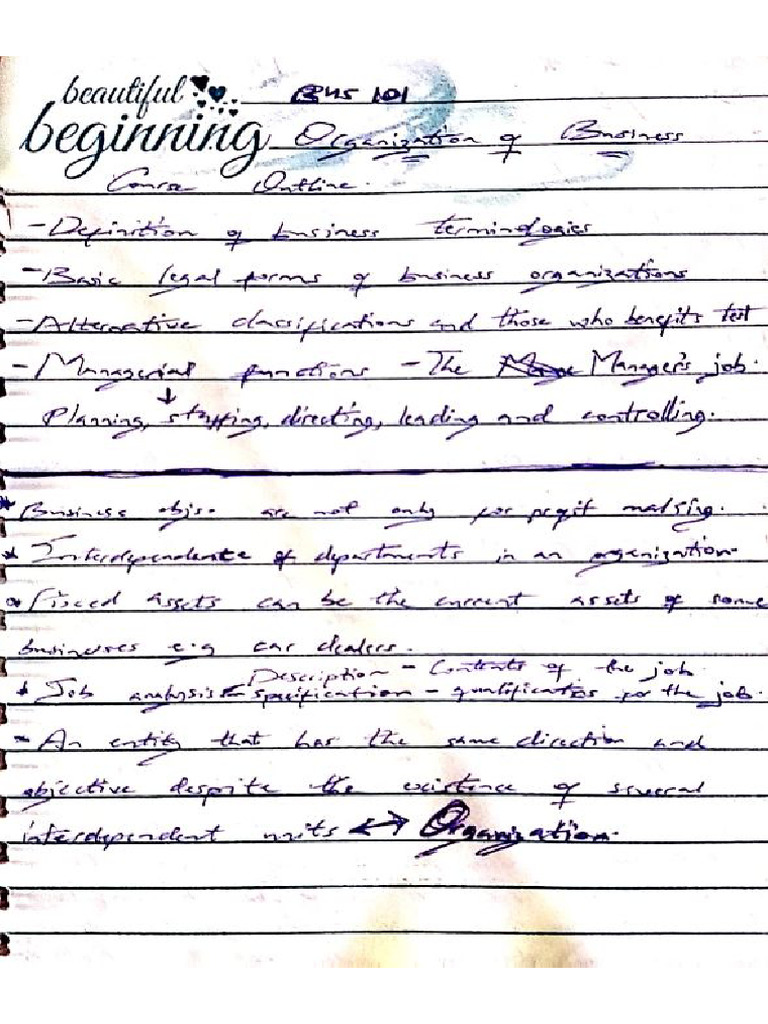 beautiful
beginning
BUS 101
Organization of Business
Course Outline.
- Definition of business terminologies
- Basic legal forms of business organizations
- Alternative classifications and those who benefits test
- Managerial functions - The Manager's job.
↓
Planning, staffing, directing, leading and controlling.
* Business objs. are not only for profit making.
* Interdependence of departments in an organization.
* Fixed assets can be the current assets of some
businesses e.g car dealers.
Description - Contents of the job
* Job analysis specification - qualifications for the job.
- An entity that has the same direction and
objective despite the existence of several
interdependent units ↔ Organization.